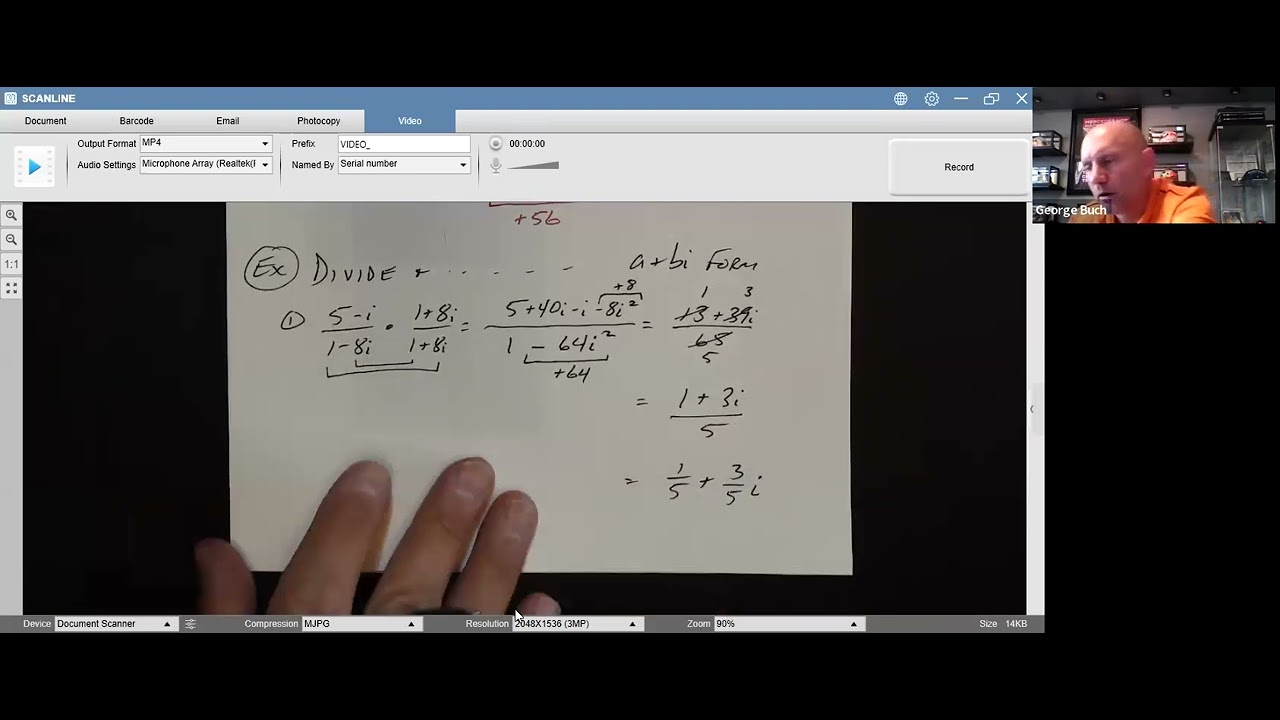 SCANLINE
Document Barcode Email Photocopy Video
Output Format MP4 Prefix VIDEO_ 00:00:00
Audio Settings Microphone Array (Realtek(F Named By Serial number
Record
George Buch
1:1
+56
Ex DIVIDE + . . . . . a+bi FORM
① 5-i/1-8i • 1+8i/1+8i = 5+40i-i-8i²/1 - 64i² = 13+39i/65
+8
+64
1 3
5
= 1+3i/5
= 1/5 + 3/5 i
Device Document Scanner Compression MJPG Resolution 2048X1536 (3MP) Zoom 90% Size 14KB